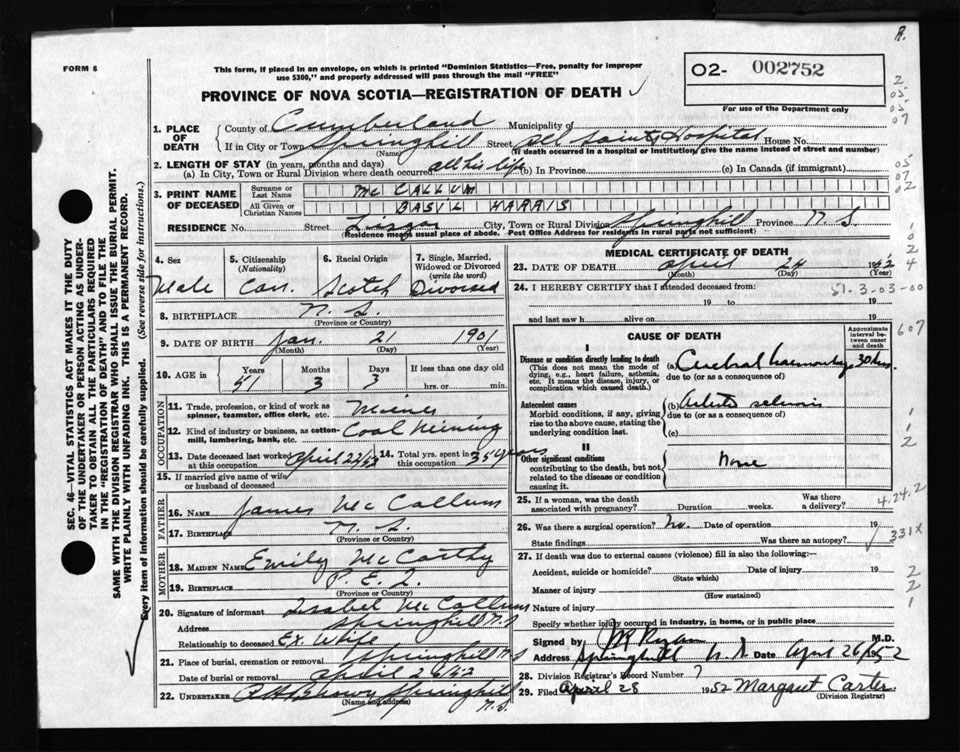 R.
FORM 6
This form, if placed in an envelope, on which is printed "Dominion Statistics—Free, penalty for improper
use $300," and properly addressed will pass through the mail "FREE"
02- 002752
For use of the Department only
PROVINCE OF NOVA SCOTIA—REGISTRATION OF DEATH
2
05
05
07
05
07
02
1. PLACE OF DEATH
County of Cumberland Municipality of
If in City or Town Springhill Street All Saints Hospital House No.
(Name) (If death occurred in a hospital or institution, give the name instead of street and number)
2. LENGTH OF STAY (in years, months and days)
(a) In City, Town or Rural Division where death occurred all his life (b) In Province (c) In Canada (if immigrant)
3. PRINT NAME OF DECEASED
Surname or Last Name McCALLUM
All Given or Christian Names BASIL HARRIS
RESIDENCE No. Street City, Town or Rural Division Springhill Province N.S.
(Residence means usual place of abode. Post Office Address for residents in rural parts not sufficient)
4. Sex Male
5. Citizenship (Nationality) Can.
6. Racial Origin Scotch
7. Single, Married, Widowed or Divorced (write the word) Divorced
8. BIRTHPLACE N.S.
(Province or Country)
9. DATE OF BIRTH Jan. 21 1901
(Month) (Day) (Year)
10. AGE in Years 51 Months 3 Days 3 If less than one day old hrs. or min.
OCCUPATION
11. Trade, profession, or kind of work as spinner, teamster, office clerk, etc. Miner
12. Kind of industry or business, as cotton-mill, lumbering, bank, etc. Coal Mining
13. Date deceased last worked at this occupation April 22/52
14. Total yrs. spent in this occupation 35 years
15. If married give name of wife or husband of deceased
FATHER
16. NAME James McCallum
17. BIRTHPLACE N.S.
(Province or Country)
MOTHER
18. MAIDEN NAME Emily McCarthy
19. BIRTHPLACE P.E.I.
(Province or Country)
20. Signature of informant Isabel McCallum
Address Springhill N.S.
Relationship to deceased Ex. Wife
21. Place of burial, cremation or removal Springhill N.S.
Date of burial or removal April 26/52
22. UNDERTAKER Brown Springhill N.S.
(Name and address)
MEDICAL CERTIFICATE OF DEATH
23. DATE OF DEATH April 24 1952
(Month) (Day) (Year)
24. I HEREBY CERTIFY that I attended deceased from:
51-3-03-00
19 to 19
and last saw h alive on 19
CAUSE OF DEATH
Approximate interval between onset and death
607
I
Disease or condition directly leading to death
(This does not mean the mode of dying, e.g., heart failure, asthenia, etc. It means the disease, injury, or complication which caused death.)
(a) Cerebral haemorrhage 30 hrs.
due to (or as a consequence of)
Antecedent causes
Morbid conditions, if any, giving rise to the above cause, stating the underlying condition last.
(b)
due to (or as a consequence of)
(c)
II
Other significant conditions
contributing to the death, but not related to the disease or condition causing it.
None
25. If a woman, was the death associated with pregnancy? Duration weeks. Was there a delivery?
4.24.2
26. Was there a surgical operation? No. Date of operation 19
State findings Was there an autopsy?
331X
27. If death was due to external causes (violence) fill in also the following:
Accident, suicide or homicide? Date of injury 19
(State which)
Manner of injury
(How sustained)
Nature of injury
Specify whether injury occurred in industry, in home, or in public place
Signed by M.D.
Address Springhill N.S. Date April 26/1952
28. Division Registrar's Record Number 7
29. Filed April 28 1952 Margaret Carter
(Division Registrar)
SEC. 46—VITAL STATISTICS ACT MAKES IT THE DUTY
OF THE UNDERTAKER OR PERSON ACTING AS UNDER-
TAKER TO OBTAIN ALL THE PARTICULARS REQUIRED
IN THE "REGISTRATION OF DEATH" AND TO FILE THE
SAME WITH THE DIVISION REGISTRAR WHO SHALL ISSUE THE BURIAL PERMIT.
WRITE PLAINLY WITH UNFADING INK. THIS IS A PERMANENT RECORD.
Every item of information should be carefully supplied. (See reverse side for instructions.)